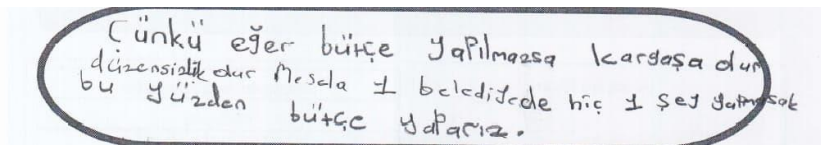 Çünkü eğer bütçe yapılmazsa kargaşa olur
düzensizlik olur Mesela 1 belediyede hiç 1 şey yapmasak
bu yüzden bütçe yaparız.